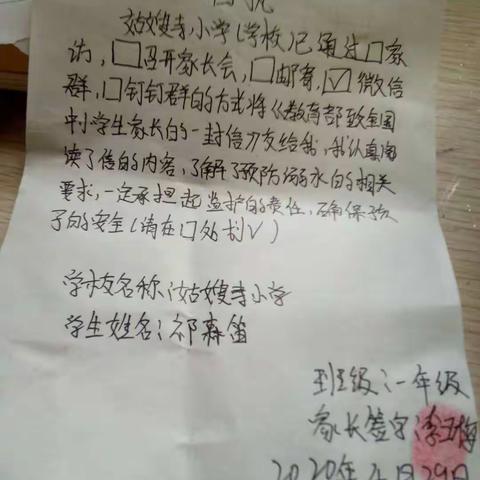 姑嫂寺小学(学校)已通过□家
访,□召开家长会,□邮寄,☑微信
群,□钉钉群的方式将《教育部致全国
中小学生家长的一封信》交给我,我认真阅
读了信的内容,了解了预防溺水的相关
要求,一定承担起监护的责任,确保孩
子的安全(请在□处划√)
学校名称:姑嫂寺小学
学生姓名:祁森笛
班级:一年级
家长签字:李玉梅
2020年4月29日